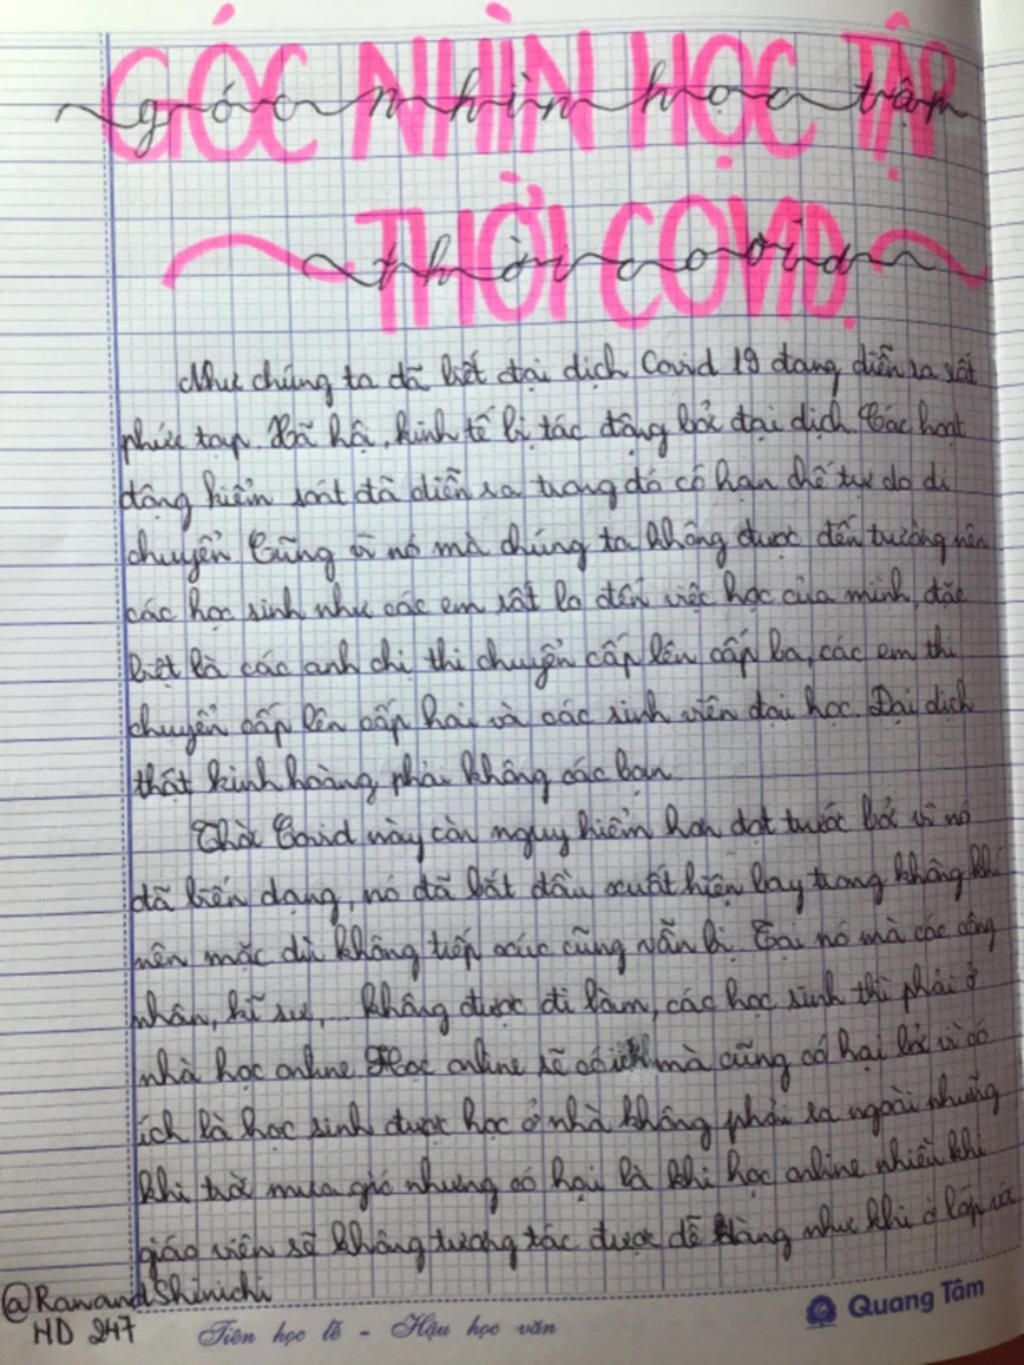 GÓC NHÌN HỌC TẬP
góc nhìn học tập
THỜI COVID.
thời covid
Như chúng ta đã biết đại dịch Covid 19 đang diễn ra rất
phức tạp. Xã hội, kinh tế bị tác động bởi đại dịch. Các hoạt
động kiểm soát đã diễn ra trong đó có hạn chế tự do di
chuyển. Cũng vì nó mà chúng ta không được đến trường nên
các học sinh như các em rất lo đến việc học của mình, đặc
biệt là các anh chị thi chuyển cấp lên cấp ba, các em thi
chuyển cấp lên cấp hai và các sinh viên đại học. Đại dịch
thật kinh hoàng phải không các bạn
Thời Covid này còn nguy hiểm hơn đợt trước bởi vì nó
đã biến dạng, nó đã bắt đầu xuất hiện bay trong không khí
nên mặc dù không tiếp xúc cũng vẫn bị. Tại nó mà các công
nhân, kĩ sư,... không được đi làm, các học sinh thì phải ở
nhà học online. Học online sẽ có ích mà cũng có hại bởi vì có
ích là học sinh được học ở nhà không phải ra ngoài những
khi trời mưa gió nhưng có hại là khi học online nhiều khi
giáo viên sẽ không tương tác được dễ dàng như khi ở lớp với
@RanandShinichi
HD 247
Tiên học lễ - Hậu học văn
Quang Tâm